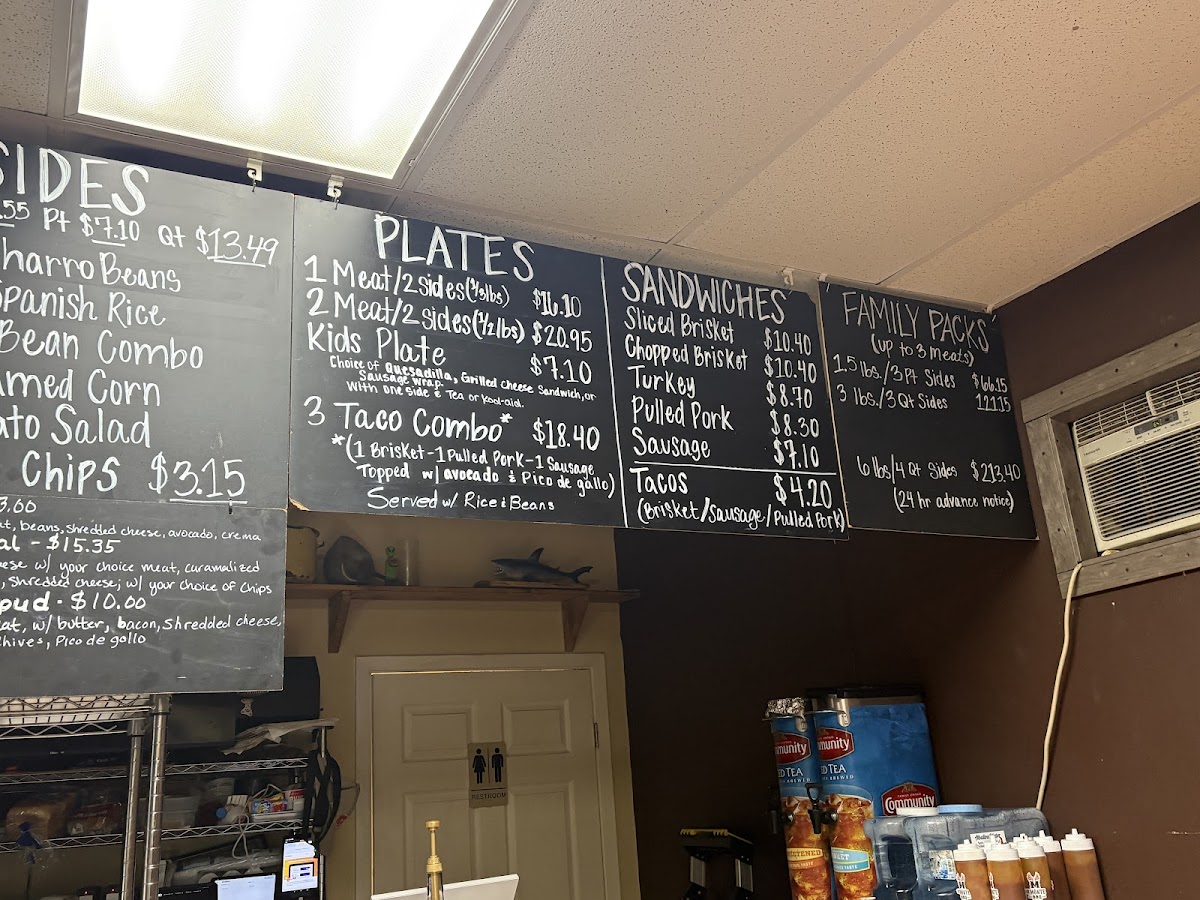 SIDES
.55 Pt $7.10 Qt $13.49
Charro Beans
Spanish Rice
Bean Combo
amed Corn
ato Salad
Chips $3.15
3.00
at, beans, shredded cheese, avocado, crema
al - $15.35
eese w/ your choice meat, caramalized
, shredded cheese; w/ your choice of chips
pud - $10.00
eat, w/ butter, bacon, shredded cheese,
hives, Pico de gallo
PLATES
1 Meat/2 Sides (1/3 lbs) $16.10
2 Meat/2 sides (1/2 lbs) $20.95
Kids Plate $7.10
Choice of Quesadilla, Grilled cheese Sandwich, or
Sausage wrap.
With one side & Tea or Kool-aid.
3 Taco Combo* $18.40
*(1 Brisket - 1 Pulled Pork - 1 Sausage
Topped w/ avocado & Pico de gallo)
Served w/ Rice & Beans
SANDWICHES
Sliced Brisket $10.40
Chopped Brisket $10.40
Turkey $8.70
Pulled Pork $8.30
Sausage $7.10
Tacos $4.20
(Brisket/Sausage/Pulled Pork)
FAMILY PACKS
(up to 3 Meats)
1.5 lbs./3 Pt Sides $66.15
3 lbs./3 Qt Sides 121.15
6 lbs/4 Qt Sides $213.40
(24 hr advance notice)
RESTROOM
munity
ED TEA
munity
ED TEA
Community